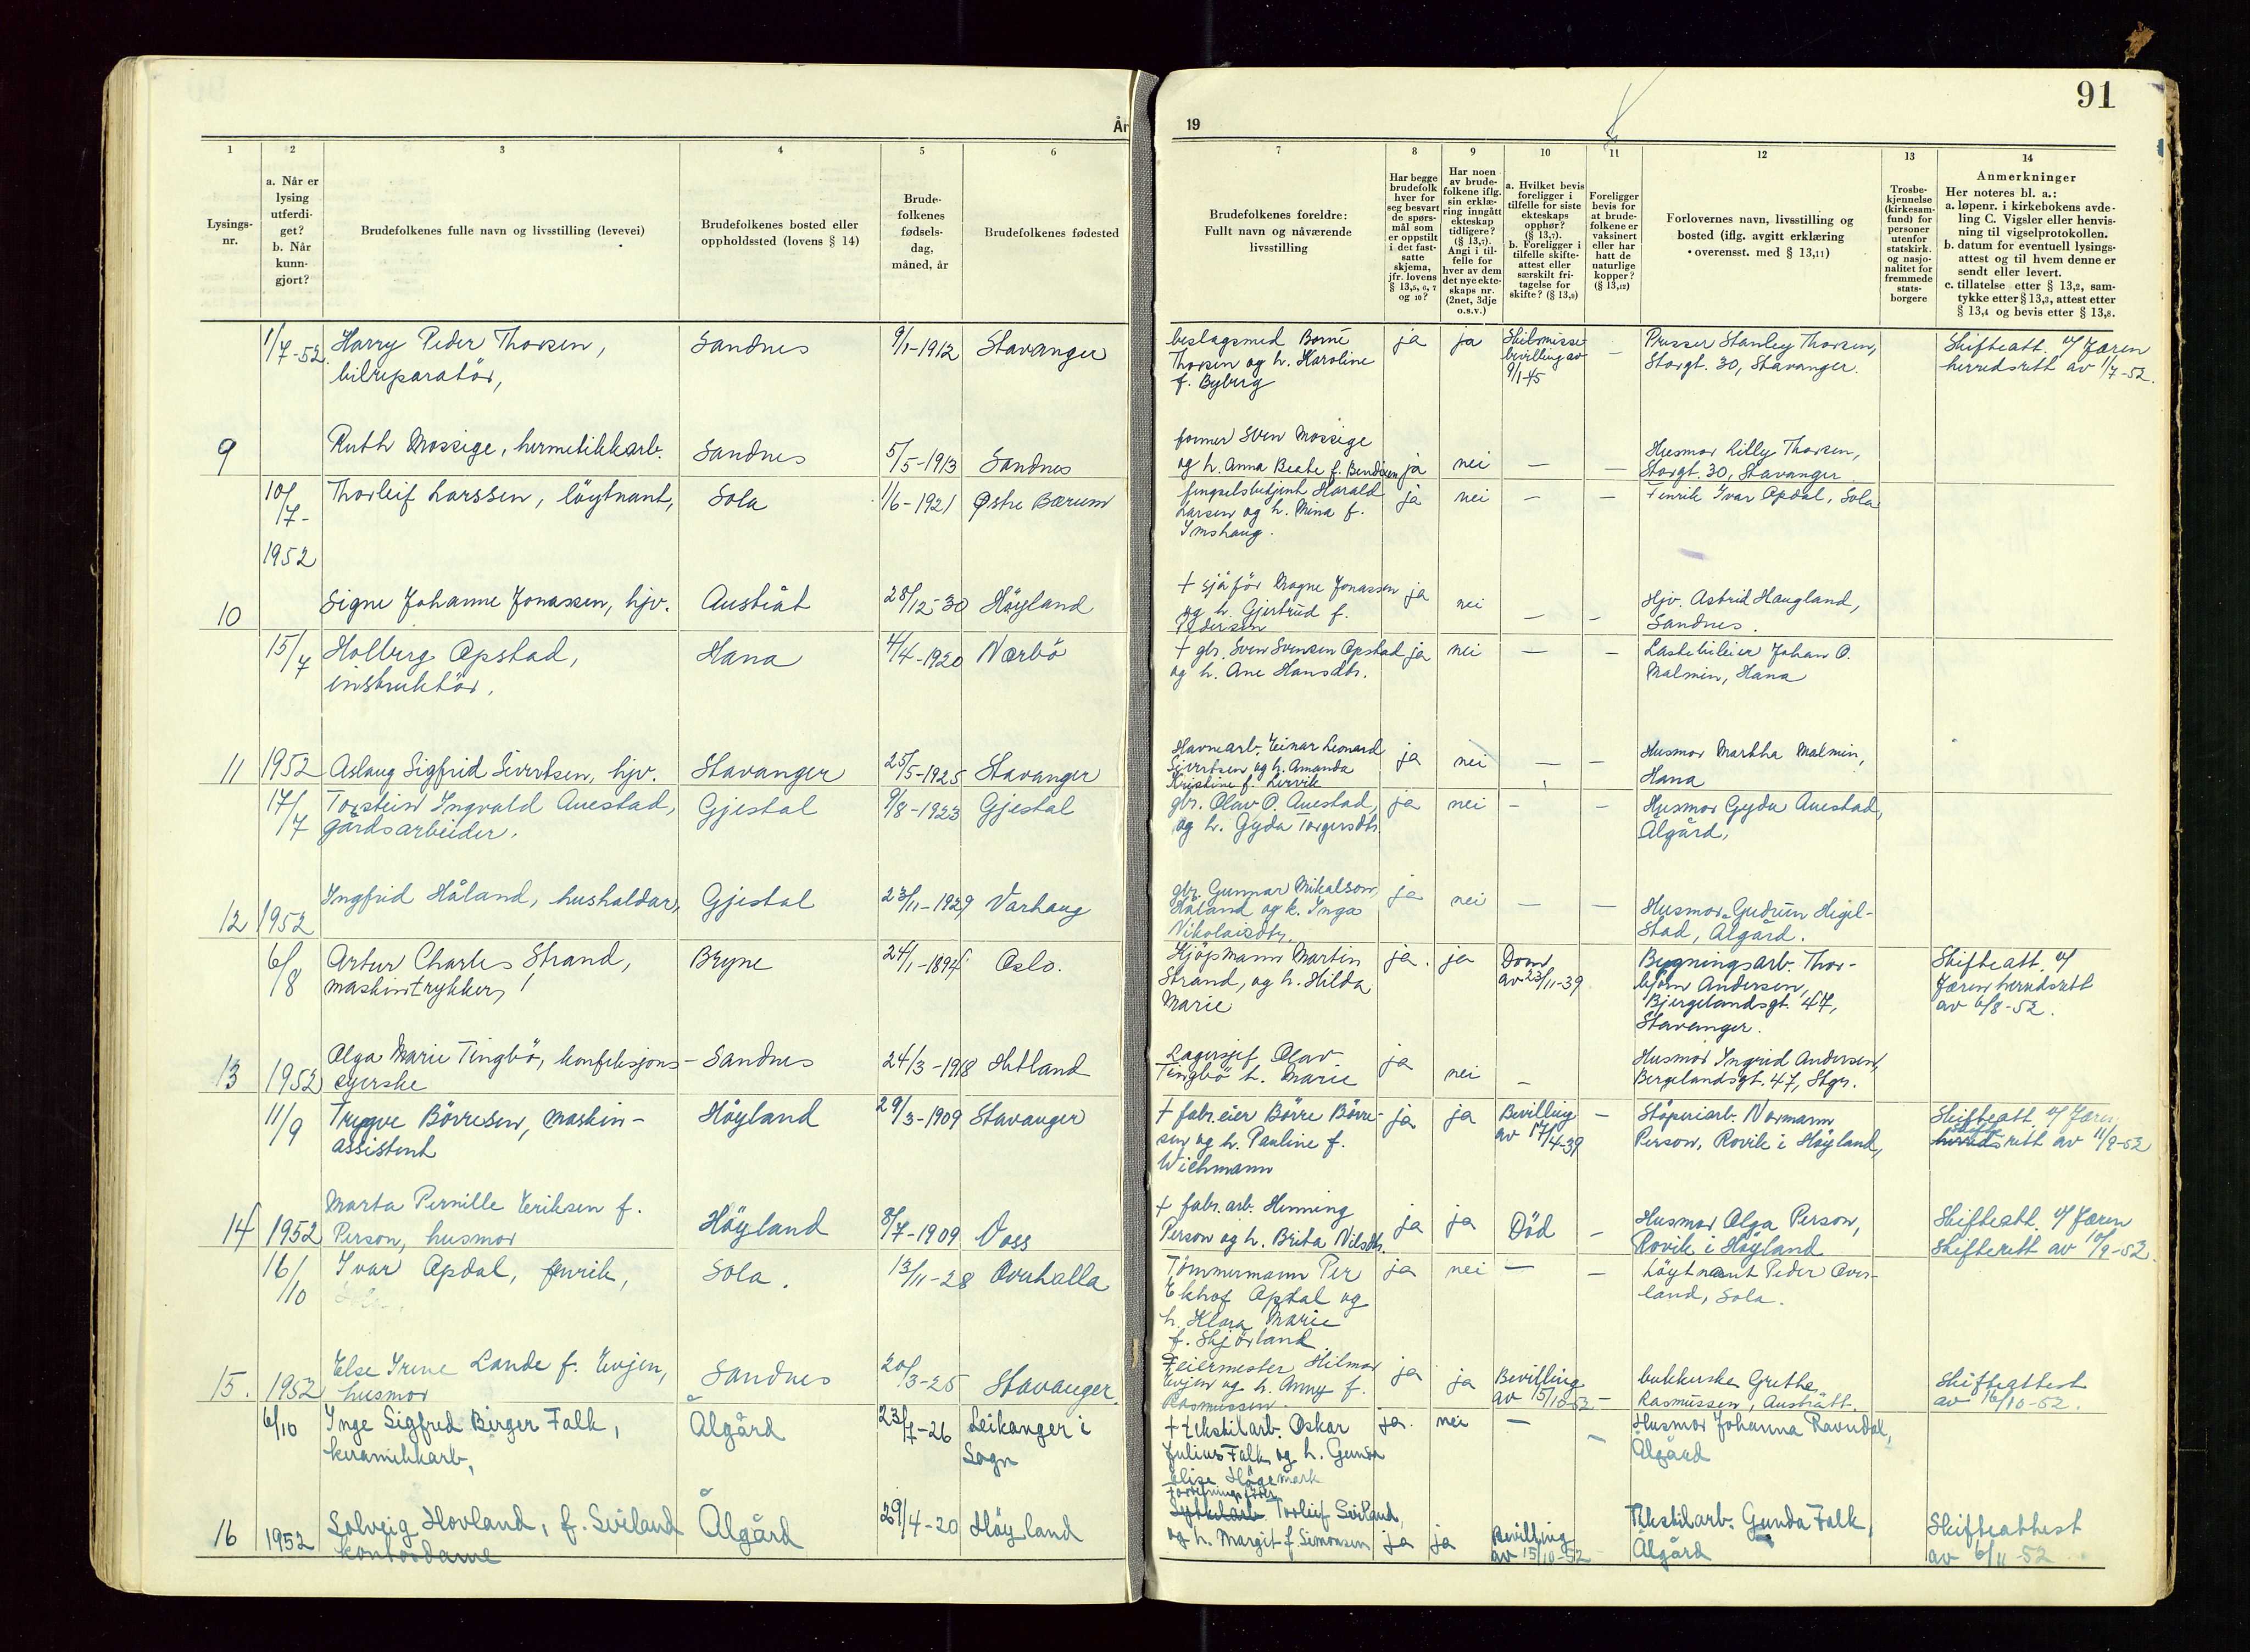 År
19
91
1
2
3
4
5
6
7
8
9
10
11
12
13
14
Lysings-
nr.
a. Når er
lysing
utferdi-
get?
b. Når
kunn-
gjort?
Brudefolkenes fulle navn og livsstilling (levevei)
Brudefolkenes bosted eller
oppholdssted (lovens § 14)
Brude-
folkenes
fødsels-
dag,
måned, år
Brudefolkenes fødested
Brudefolkenes foreldre:
Fullt navn og nåværende
livsstilling
Har begge
brudefolk
hver for
seg besvart
de spørs-
mål som
er oppstilt
i det fast-
satte
skjema,
jfr. lovens
§ 13,5, 6, 7
og 10?
Har noen
av brude-
folkene iflg.
sin erklæ-
ring inngått
ekteskap
tidligere?
(§ 13,7).
Angi i til-
felle for
hver av dem
det nye ekte-
skaps nr.
(2net, 3dje
o.s.v.)
a. Hvilket bevis
foreligger i
tilfelle for siste
ekteskaps
opphør?
(§ 13,7).
b. Foreligger i
tilfelle skifte-
attest eller
særskilt fri-
tagelse for
skifte? (§ 13,9)
Foreligger
bevis for
at brude-
folkene er
vaksinert
eller har
hatt de
naturlige
kopper?
(§ 13,12)
Forlovernes navn, livsstilling og
bosted (iflg. avgitt erklæring
overensst. med § 13,11)
Trosbe-
kjennelse
(kirkesam-
fund) for
personer
utenfor
statskirk.
og nasjo-
nalitet for
fremmede
stats-
borgere
Anmerkninger
Her noteres bl. a.:
a. løpenr. i kirkebokens avde-
ling C. Vigsler eller henvis-
ning til vigselprotokollen.
b. datum for eventuell lysings-
attest og til hvem denne er
sendt eller levert.
c. tillatelse etter § 13,2, sam-
tykke etter § 13,3, attest etter
§ 13,4 og bevis etter § 13,8.
1/7-52. Harry Peder Thorsen, Sandnes 9/1-1912 Stavanger beslagsmed Borne ja ja Skilsmisse – Presser Stanley Thorsen, Skifteatt. v/ Jæren
bilreparatör, Thorsen og h. Karoline bevilling av Storgt. 30, Stavanger. herredsrett av 1/7-52.
f. Byberg 9/1-45
former Sven Mossige
9 Ruth Mossige, hermetikkarb. Sandnes 5/5-1913 Sandnes og h. Anna Beate f. Bendixen ja nei – – Husmor Lilly Thorsen,
Storgt. 30, Stavanger
10/7- Thorleif Larssen, löytnant, Sola 1/6-1921 Østre Bærum fengselsbetjent Harald ja nei – – Fenrik Ivar Opdal, Sola
1952 Larsen og h. Mina f.
Imshaug.
+ sjåför Magne Jonassen
10 Signe Johanne Jonassen, hjv. Austråt 28/12-30 Höyland og h. Gjertrud f. ja nei – – Hjv. Astrid Haugland,
Pedersen Sandnes.
15/7 Holberg Opstad, Hana 4/4-1920 Nærbö + gbr. Sven Svensen Opstad ja nei – – Lastebileier Johan O.
instruktör, og h. Ane Hansdtr. Malmin, Hana
Havnearb. Einar Leonard
11 1952 Aslaug Sigfrid Sivertsen, hjv. Stavanger 25/5-1925 Stavanger Sivertsen og h. Amanda ja nei – – Husmor Martha Malmin,
Kristine f. Lervik Hana
17/7 Torstein Ingvald Auestad, Gjestal 9/8-1923 Gjestal gbr. Olav O. Auestad, ja nei – – Husmor Gyda Auestad,
gårdsarbeider, og h. Gyda Torgersdtr. Ålgård,
12 1952 Ingfrid Håland, husholdar, Gjestal 23/11-1929 Varhaug gbr. Gunnar Mikalson ja nei – – Husmor Gudrun Higel-
Håland og k. Inga stad, Ålgård.
Nikolaisdtr.
6/8 Artur Charles Strand, Bryne 24/1-1894 Oslo. Kjöpmann Martin ja. ja Dom Bygningsarb. Thor- Skifteatt. v/
maskintrykker, Strand, og h. Hilda av 23/11-39 björn Andersen, Jæren herredsrett
Marie Bjergelandsgt. 47, av 6/8-52.
Stavanger.
13 1952 Olga Marie Tingbö, konfeksjons- Sandnes 24/3-1918 Hetland Lagersjef Olav ja nei – Husmor Ingrid Andersen,
syerske Tingbö h. Marie Bergelandsgt. 47, Stgr.
11/9 Trygve Börresen, maskin- Höyland 29/3-1909 Stavanger + fabr.eier Börre Börre- ja ja Bevilling – Stöperiarb. Normann Skifteatt. v/ Jæren
assistent sen og h. Pauline f. av 17/4-39 Person, Rovik i Höyland, skifterett av 11/9-52
Wichmann
Marta Pernille Eriksen f. + fabr. arb. Henning
14 1952 Person, husmor Höyland 8/7-1909 Voss Person og h. Brita Nilsdtr. ja ja Död – Husmor Olga Person, Skifteatt. v/ Jæren
Rovik i Höyland skifterett av 10/9-52.
16/10 Ivar Opdal, fenrik, Sola. 13/11-28 Overhalla Tömmermann Per ja nei – – Löytnant Peder Over-
Ekhof Opdal og land, Sola.
h. Klara Marie
f. Skjörland
15. 1952 Else Irene Lande f. Evjen, Sandnes 20/3-25 Stavanger. Feiermester Hilmar ja ja Bevilling butikkerske Grethe Skifteattest
husmor Evjen og h. Anny f. av 15/10-52 – Rasmussen, Austrått. av 16/10-52.
Rasmussen.
6/10 Inge Sigfred Birger Falk, Ålgård 23/7-26 Leikanger i + tekstilarb. Oskar ja. nei – – Husmor Johanna Ravndal,
keramikkarb, Sogn Julius Falk og h. Gunda Ålgård
Elise Högemark
16 1952 Solveig Hovland, f. Sviland Ålgård 29/4-20 Höyland Torleif Sviland, Tekstilarb. Gunda Falk, Skifteattest
kontordame og h. Margit f. Simonsen ja ja Bevilling av 15/10-52 Ålgård av 6/11-52